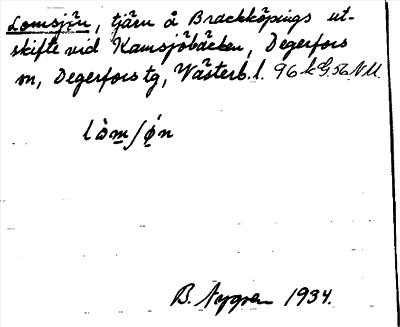 Lomsjön, tjärn å Brackköpings ut-
skifte vid Kamsjöbäcken, Degerfors
sn, Degerfors tg, Västerb. l. 96 k G. 56 N.U.
lòm/ǿn
B. Nygren 1934.